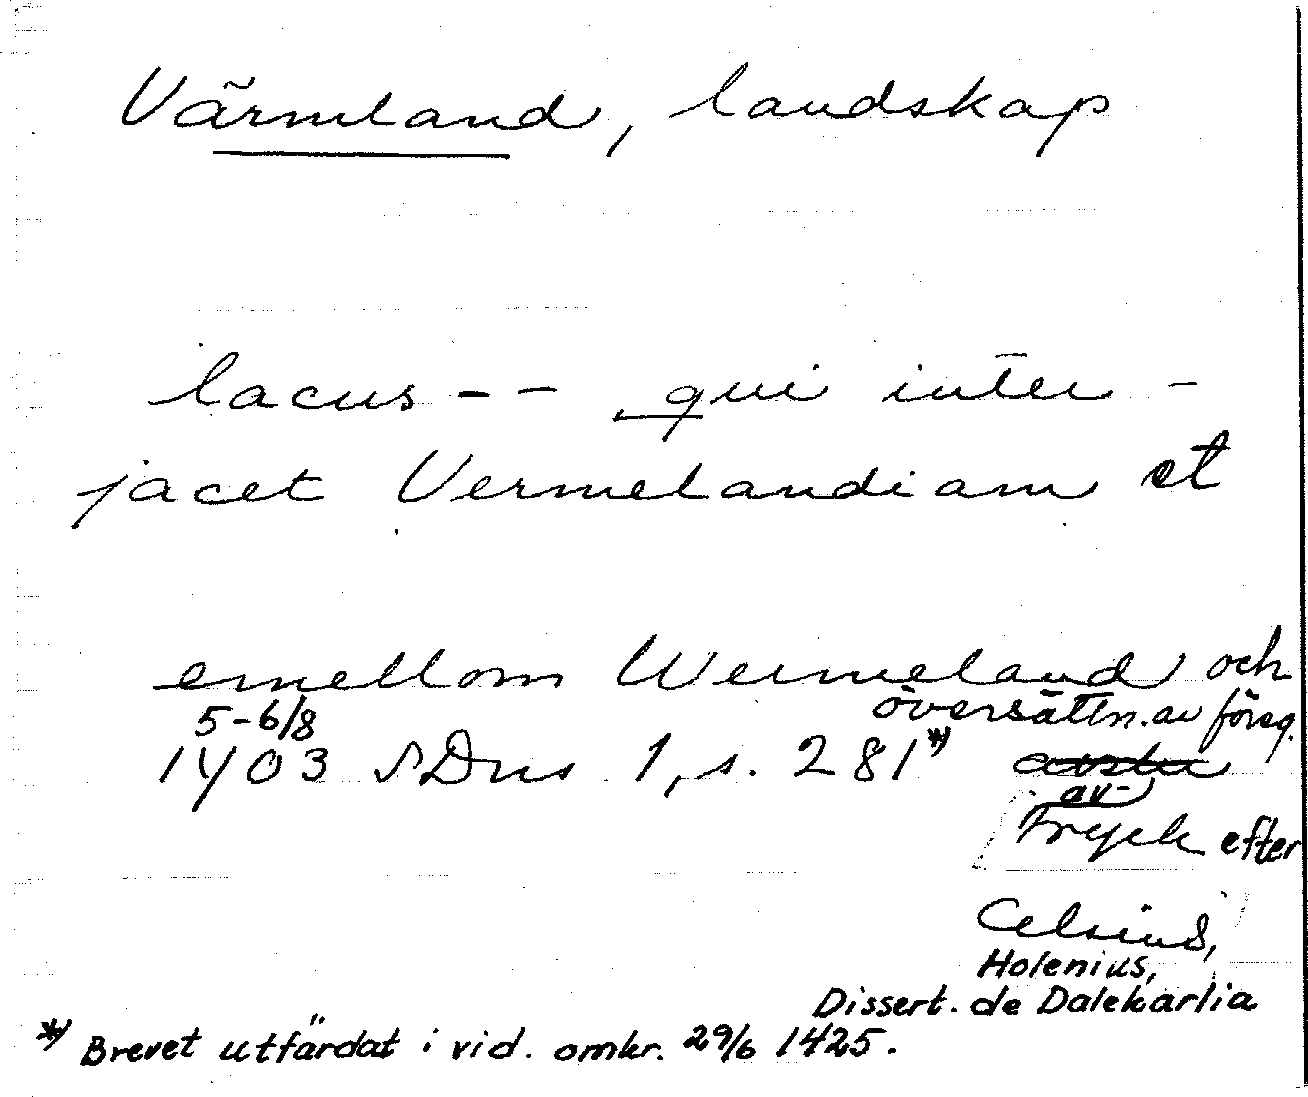 Värmland, landskap
lacus -- qui inter-
jacet Vermelandiam et
emellom Wermeland och
5-6/8 översättn. av föreg.
1403 SDns 1, s. 281*)
av-
tryck efter
Celsius,
Holenius,
Dissert. de Dalekarlia
*) Brevet utfärdat i vid. omkr. 29/6 1425.